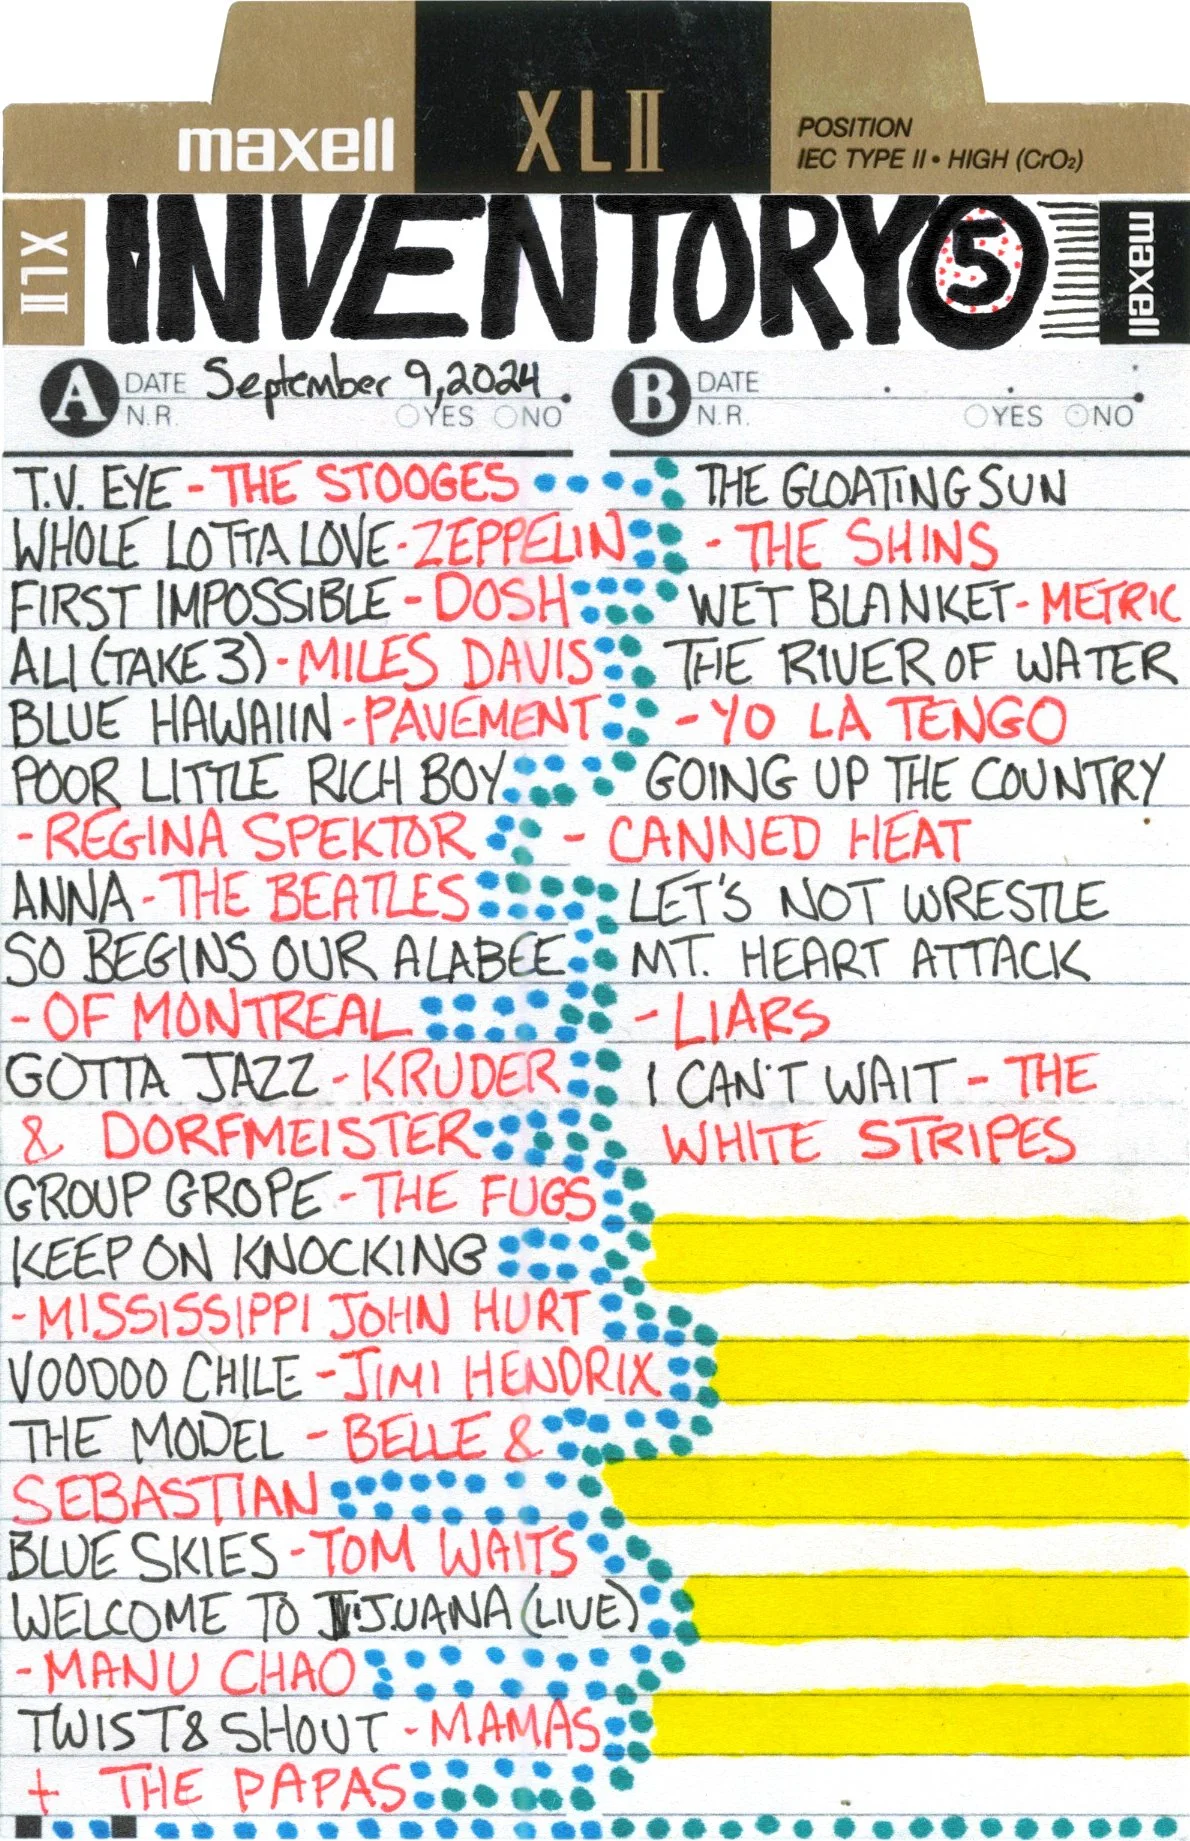 maxell
XLII
POSITION
IEC TYPE II • HIGH (CrO₂)
XLII
INVENTORY 5
maxell
A DATE September 9, 2024
N.R. YES NO
T.V. EYE - THE STOOGES
WHOLE LOTTA LOVE - ZEPPELIN
FIRST IMPOSSIBLE - DOSH
ALI (TAKE 3) - MILES DAVIS
BLUE HAWAIIN - PAVEMENT
POOR LITTLE RICH BOY
- REGINA SPEKTOR
ANNA - THE BEATLES
SO BEGINS OUR ALABEE
- OF MONTREAL
GOTTA JAZZ - KRUDER
& DORFMEISTER
GROUP GROPE - THE FUGS
KEEP ON KNOCKING
- MISSISSIPPI JOHN HURT
VOODOO CHILE - JIMI HENDRIX
THE MODEL - BELLE &
SEBASTIAN
BLUE SKIES - TOM WAITS
WELCOME TO TIJUANA (LIVE)
- MANU CHAO
TWIST & SHOUT - MAMAS
+ THE PAPAS
B DATE
N.R. YES NO
THE GLOATING SUN
- THE SHINS
WET BLANKET - METRIC
THE RIVER OF WATER
- YO LA TENGO
GOING UP THE COUNTRY
- CANNED HEAT
LET'S NOT WRESTLE
MT. HEART ATTACK
- LIARS
I CAN'T WAIT - THE
WHITE STRIPES